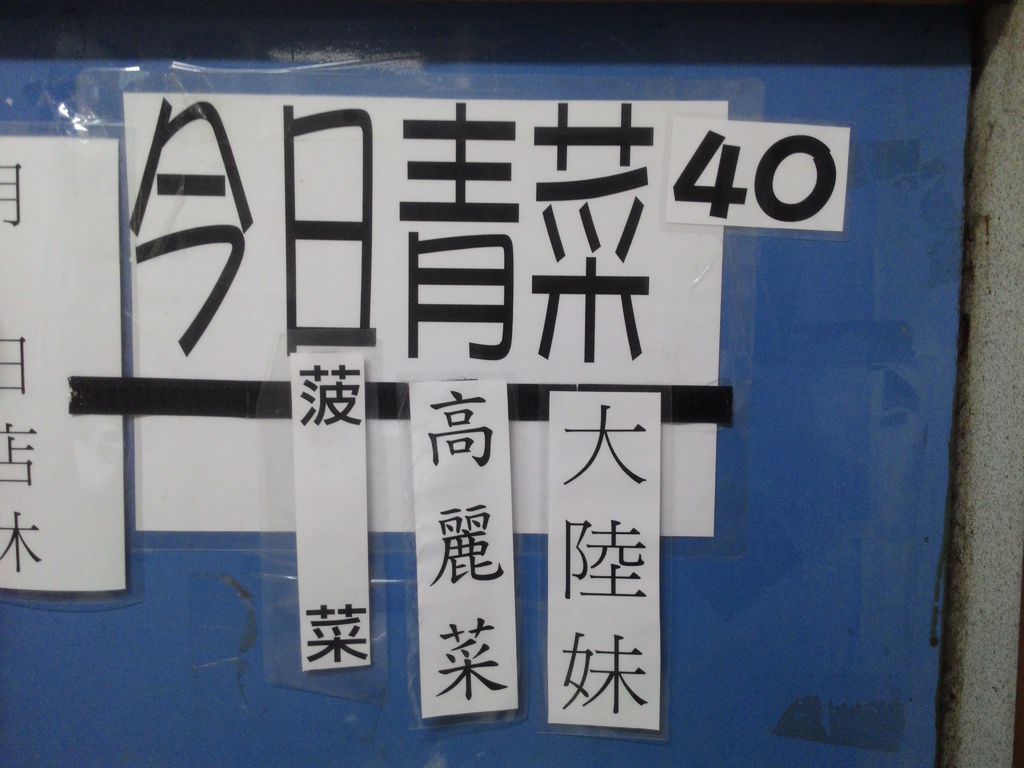 今日青菜 40
菠菜
高麗菜
大陸妹
日店休